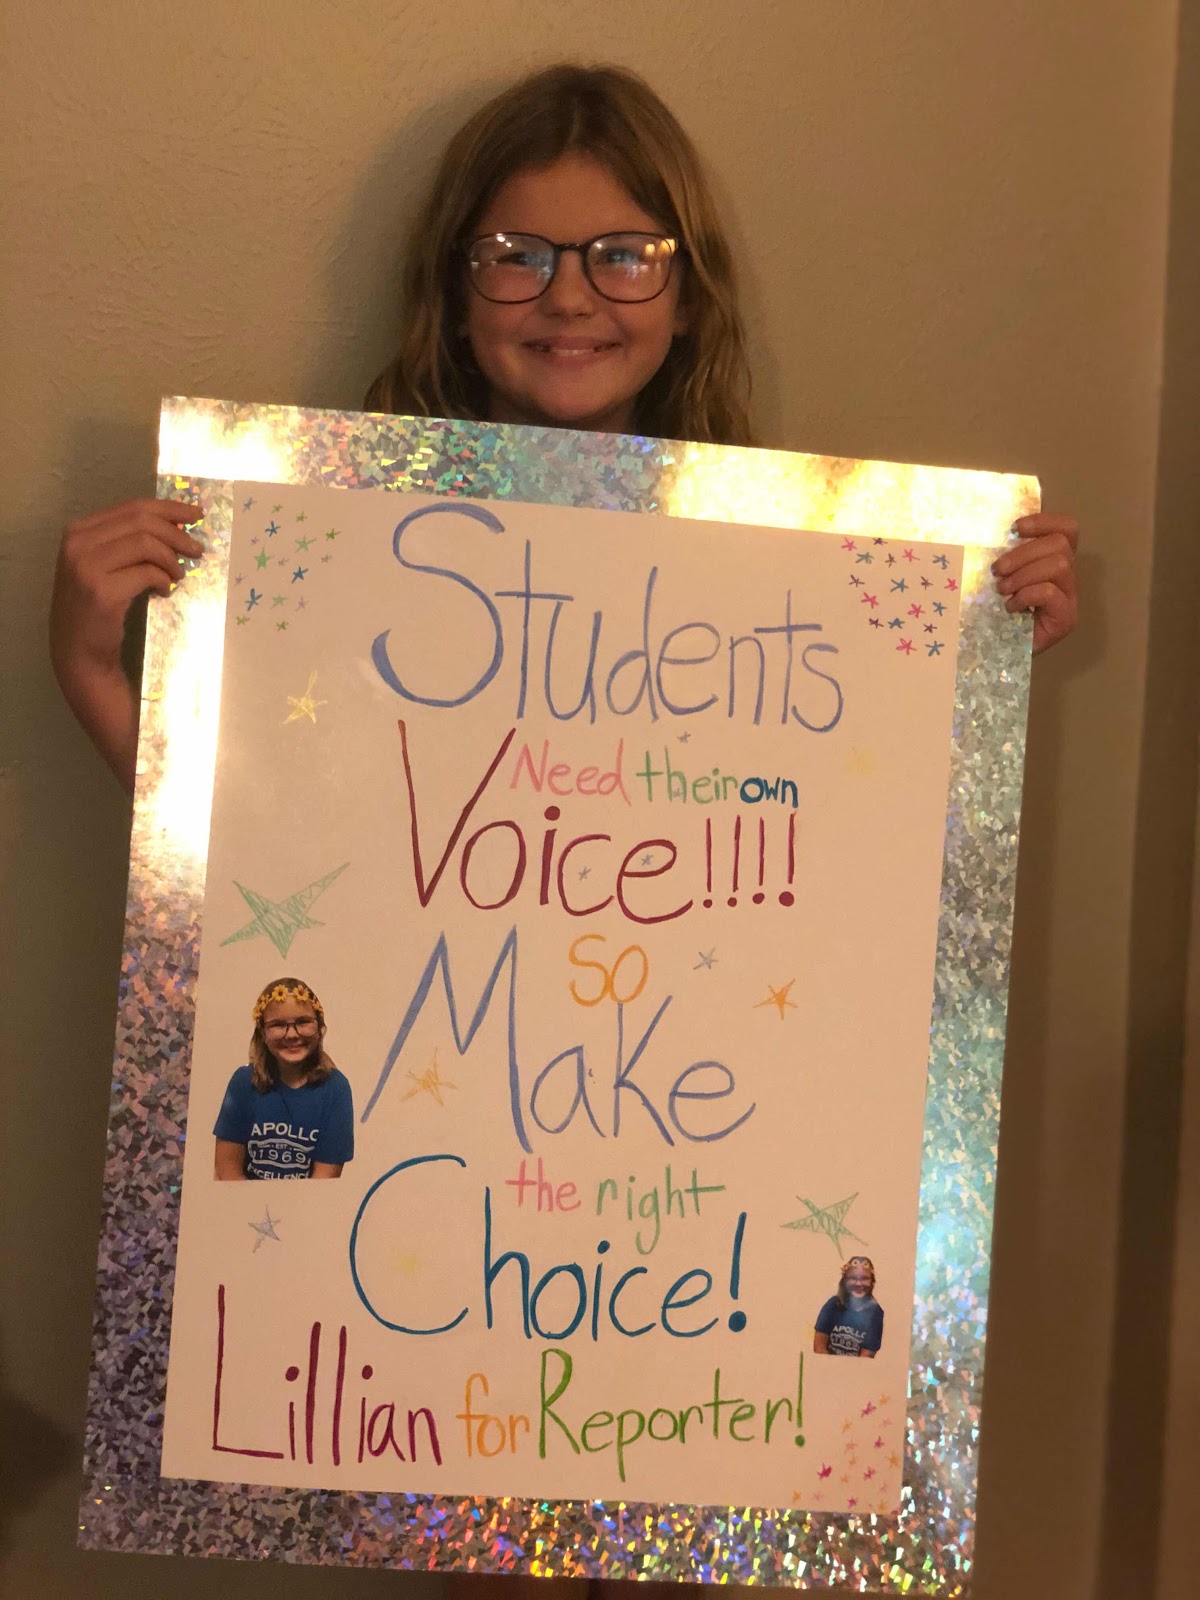 Students
Need their own
Voice!!!!
so
Make
the right
Choice!
Lillian for Reporter!
APOLLO
EST
1969
EXCELLENCE
APOLLO
1969